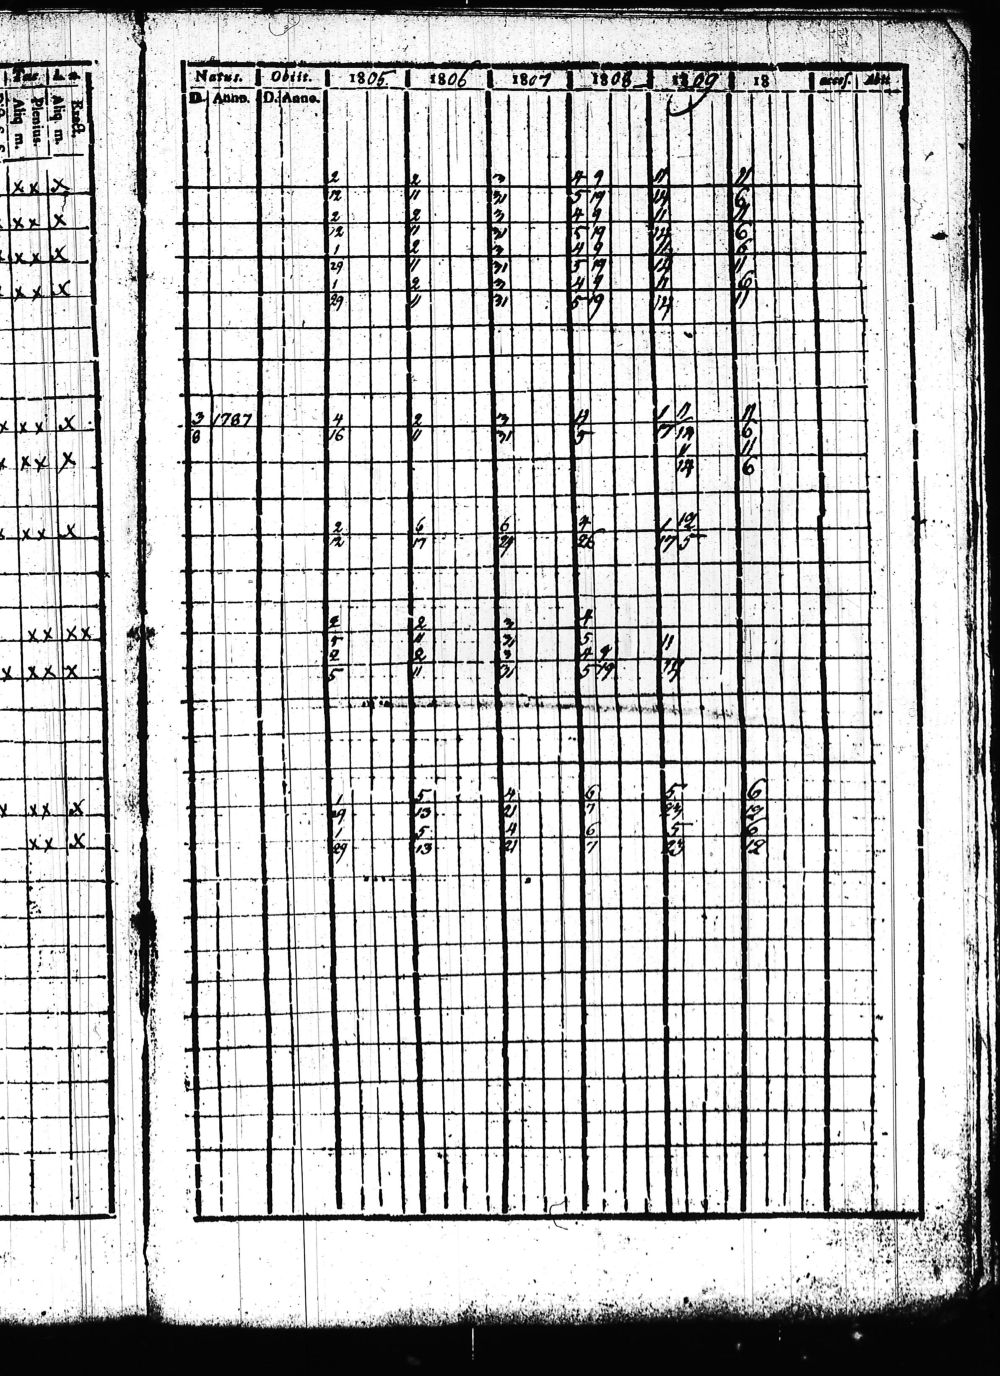 Natus. Obiit. 1805 1806 1807 1808 1809 18 accef. Abit
D. Anno. D. Anno.
Aliq m. Plenius. Aliq m. Exact.
x x x 2 2 3 4 9 11 11
12 11 31 5 19 14 6
x x x 2 2 3 4 9 11 11
12 11 31 5 19 14 6
x x x 1 2 3 4 9 11 6
29 11 31 5 19 14 11
x x x 1 2 3 4 9 11 6
29 11 31 5 19 14 11
x x x x 3 1787 4 2 3 4 1 11 11
8 16 11 31 5 17 14 6
x x x x 11 11
14 6
x x x 2 6 6 4 1 12
12 17 29 26 17 5
x x x x 2 2 3 4
5 11 31 5 11
x x x x 2 2 3 4 9
5 11 31 5 19 14
x x x x 1 5 4 6 5 6
29 13 21 7 23 12
x x x 1 5 4 6 5 6
29 13 21 7 23 12